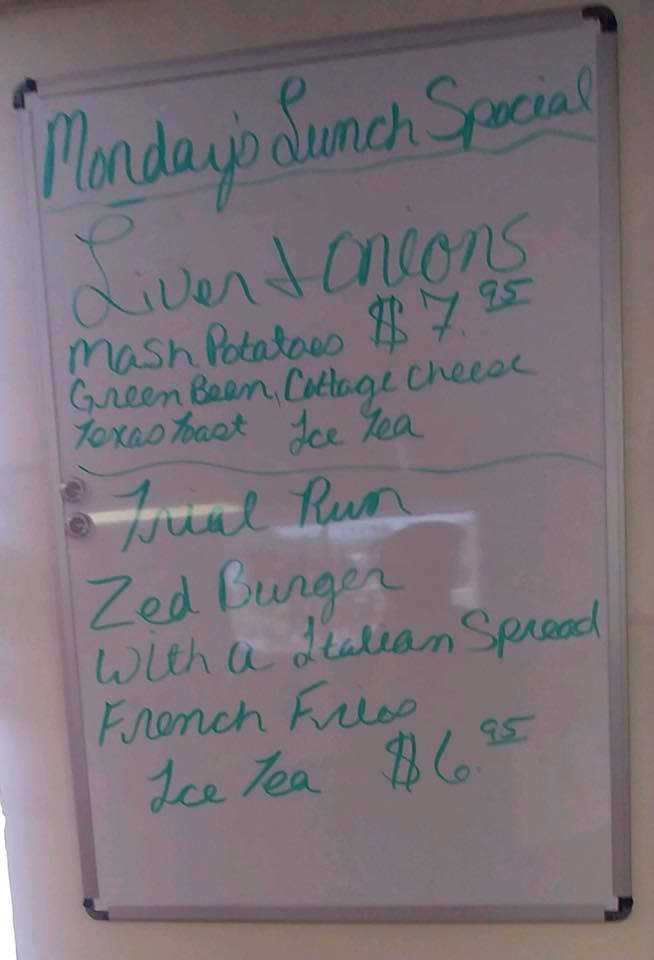 Monday's Lunch Special
Liver & onions
Mash Potatoes $7.95
Green Been, Cottage Cheese
Texas Toast Ice Tea
Trial Run
Zed Burger
With a Italian Spread
French Fries
Ice Tea $6.95